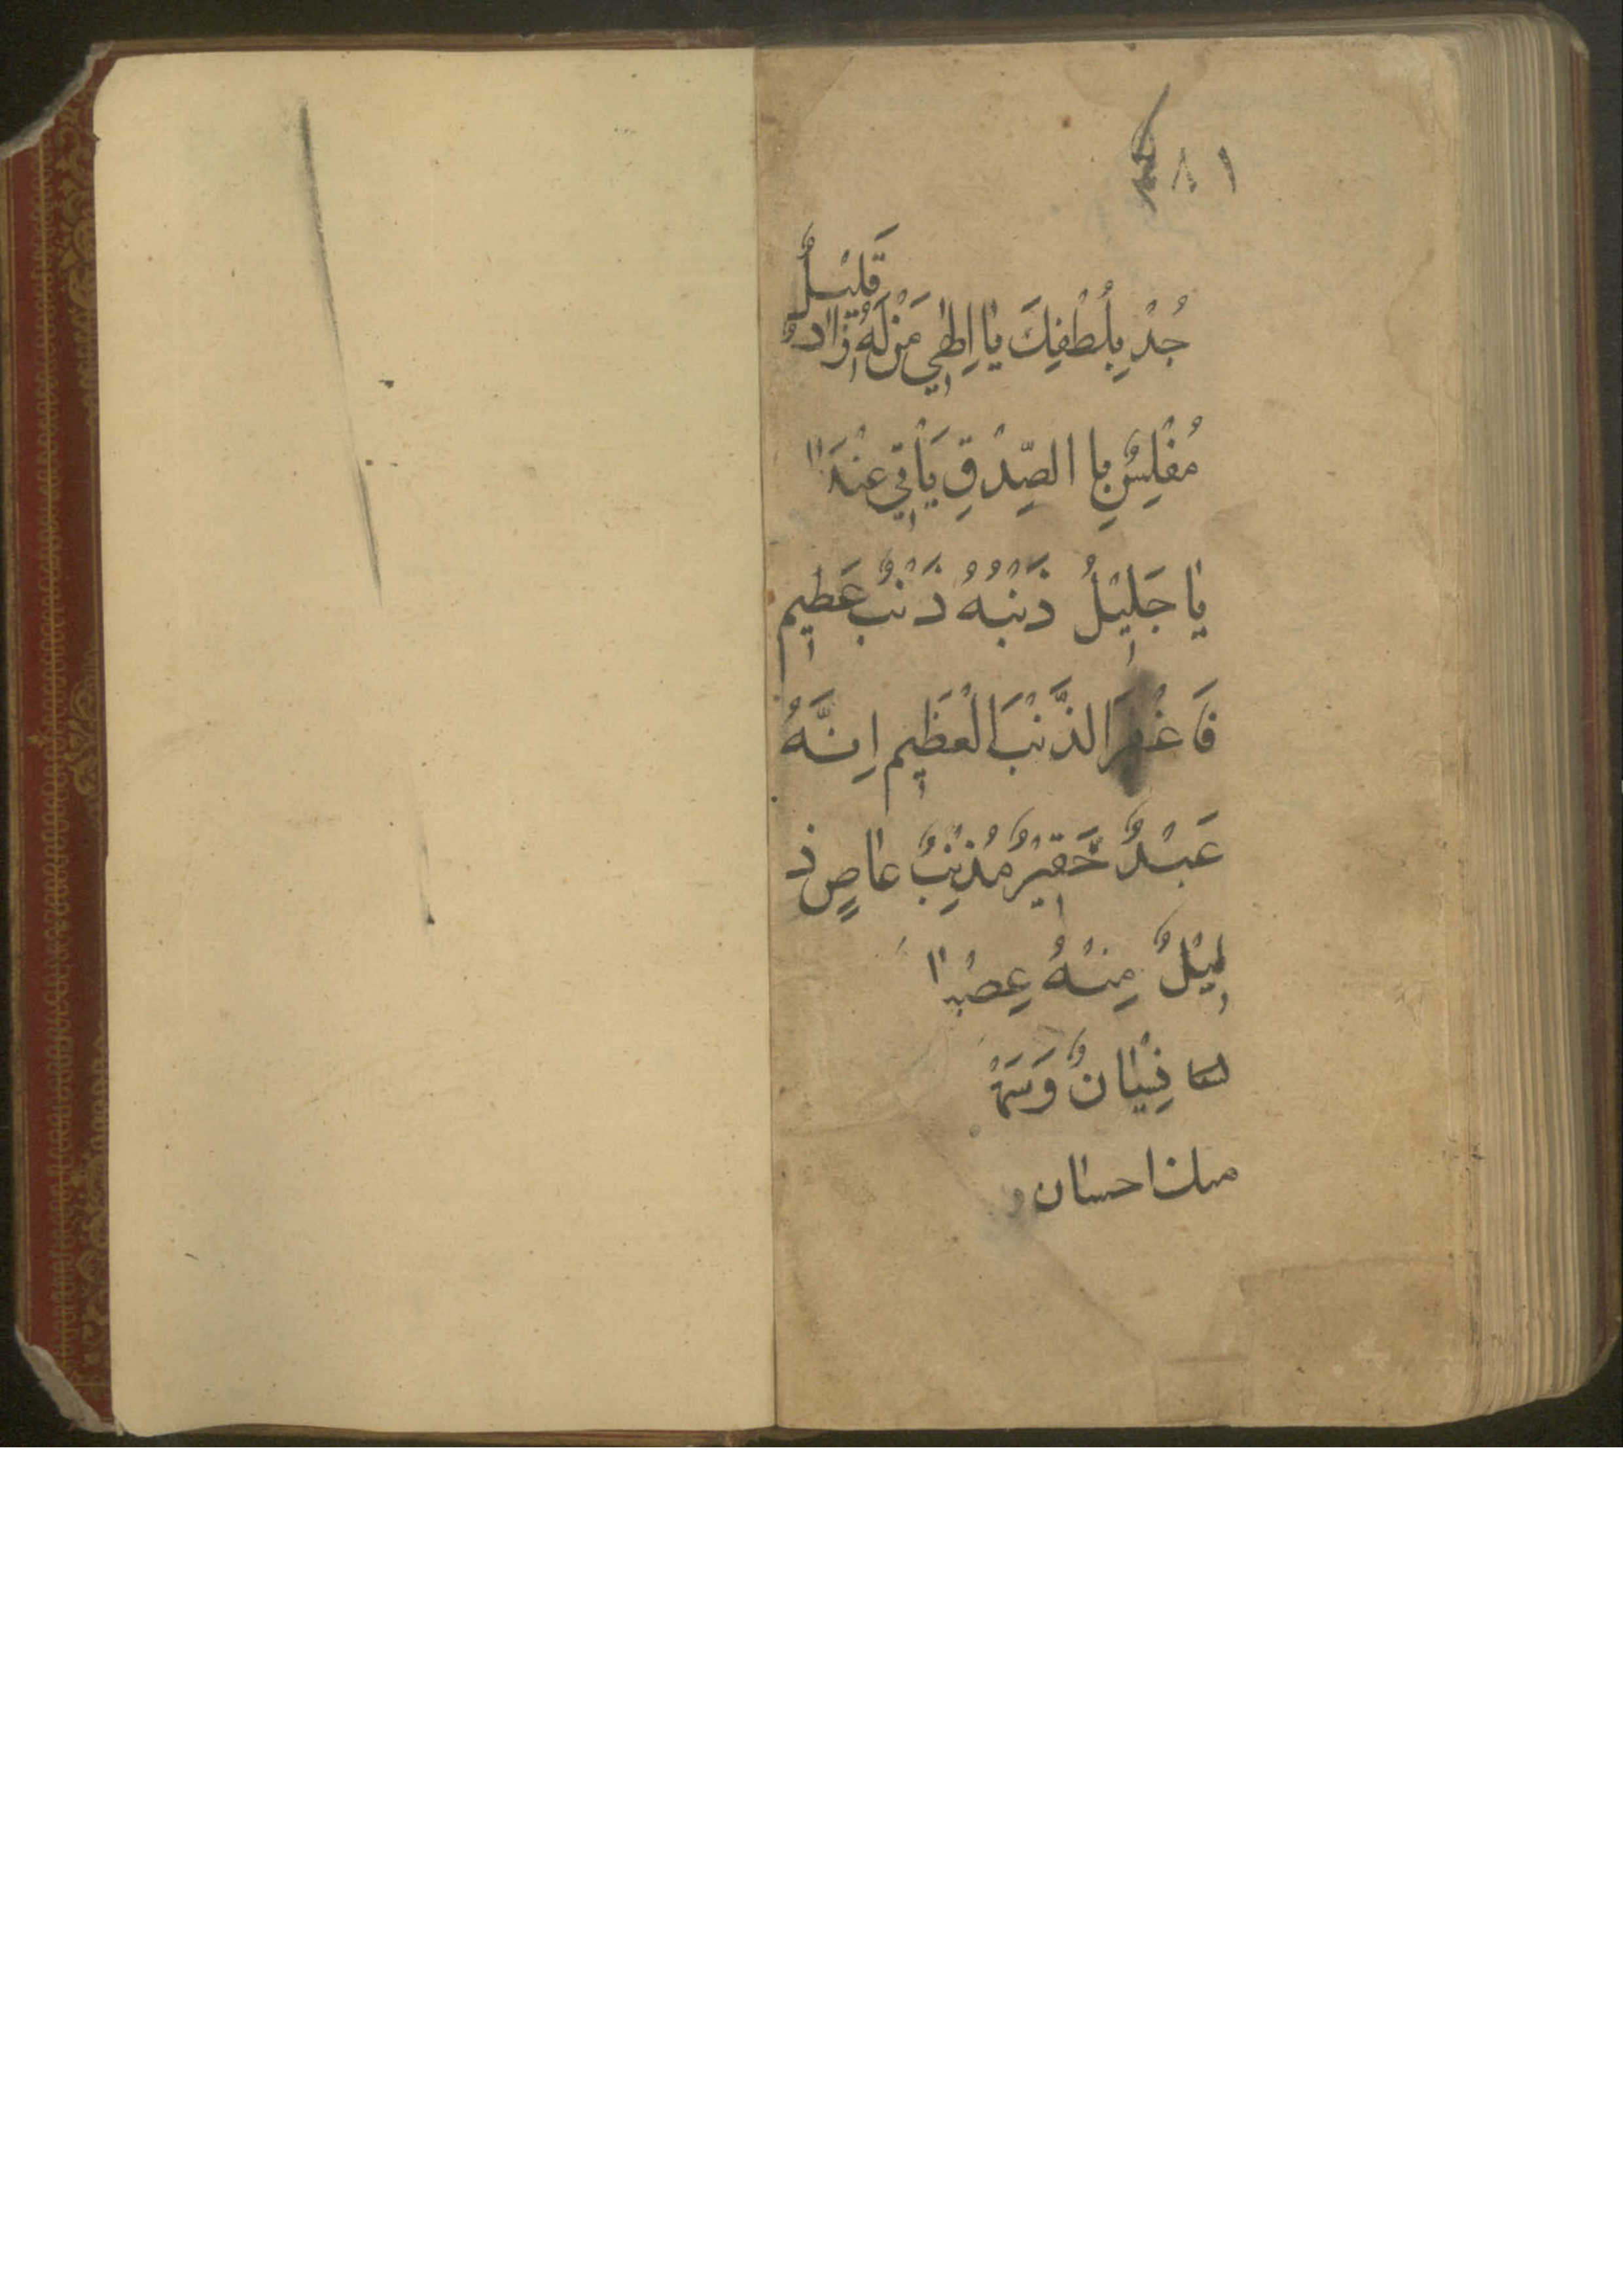 ١٨
قَلِيْلٌ
جُدْ بِلُطْفِكَ يَا اِلٰهِي مَنْ لَهُ زَادٌ
مُفْلِسٌ بِا الصِّدْقِ يَأْتِي عِنْدَ
يَا جَلِيْلُ ذَنْبُهُ ذَنْبٌ عَظِيم
فَاغْفِرَ الذَّنْبَ الْعَظِيم اِنَّهُ
عَبْدٌ حَقِيْرٌ مُذْنِبٌ عَاصٍ ذ
لِيْلٌ مِنْهُ عِصْيا
نِسْيَانٌ وَسَهْ
احسان و